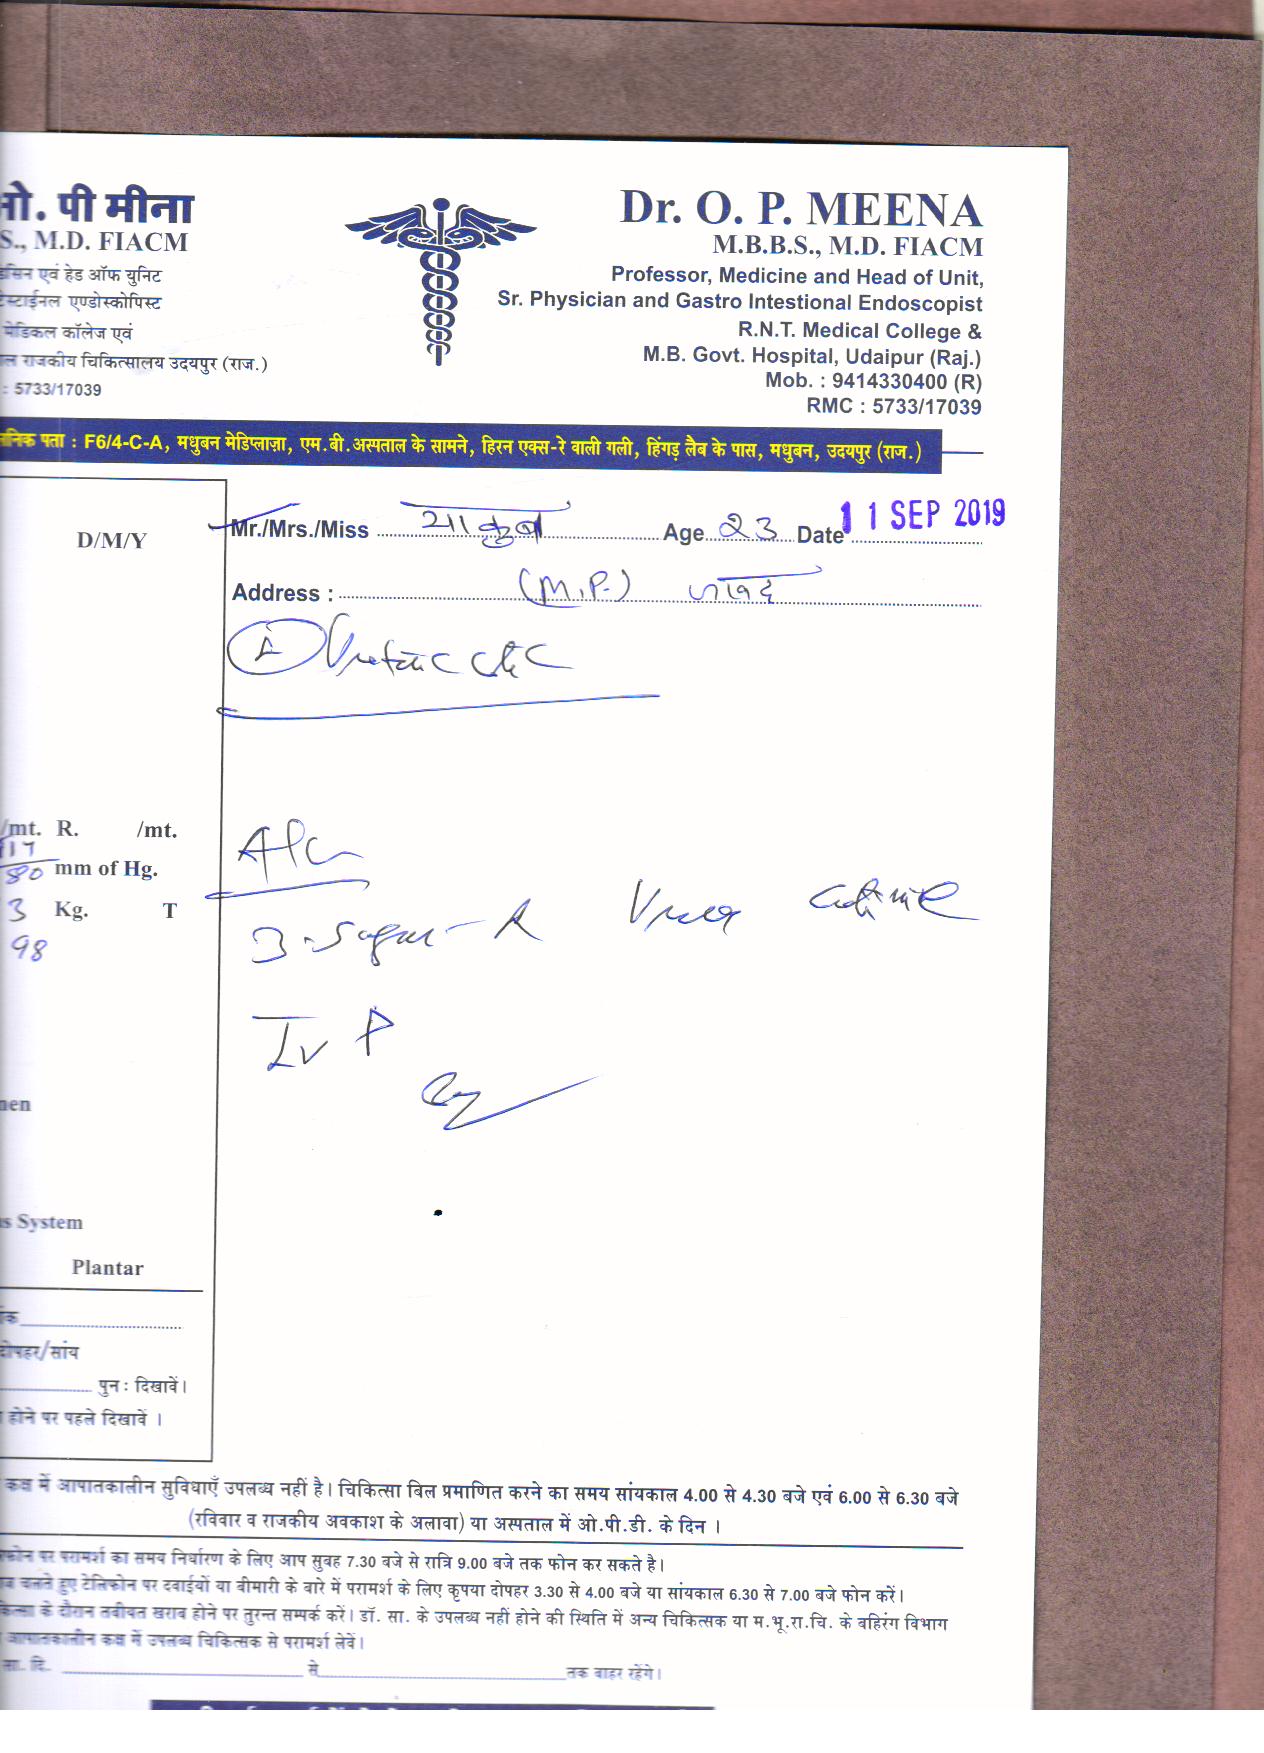 ओ. पी मीना
S., M.D. FIACM
डसिन एवं हेड ऑफ युनिट
टेस्टाईनल एण्डोस्कोपिस्ट
मेडिकल कॉलेज एवं
ल राजकीय चिकित्सालय उदयपुर (राज.)
: 5733/17039
Dr. O. P. MEENA
M.B.B.S., M.D. FIACM
Professor, Medicine and Head of Unit,
Sr. Physician and Gastro Intestional Endoscopist
R.N.T. Medical College &
M.B. Govt. Hospital, Udaipur (Raj.)
Mob. : 9414330400 (R)
RMC : 5733/17039
निक पता : F6/4-C-A, मधुबन मेडिप्लाज़ा, एम.बी.अस्पताल के सामने, हिरन एक्स-रे वाली गली, हिंगड़ लैब के पास, मधुबन, उदयपुर (राज.)
D/M/Y
/mt. R. /mt.
117
80 mm of Hg.
3 Kg. T
98
nen
s System
Plantar
ंक
दोपहर/सांय
पुनः दिखावें।
होने पर पहले दिखावें ।
Mr./Mrs./Miss याकुब Age 23 Date 11 SEP 2019
Address : (M.P.) जावद
3. Sugar - R
IVP
कक्ष में आपातकालीन सुविधाएँ उपलब्ध नहीं है। चिकित्सा बिल प्रमाणित करने का समय सांयकाल 4.00 से 4.30 बजे एवं 6.00 से 6.30 बजे
(रविवार व राजकीय अवकाश के अलावा) या अस्पताल में ओ.पी.डी. के दिन ।
फोन पर परामर्श का समय निर्धारण के लिए आप सुबह 7.30 बजे से रात्रि 9.00 बजे तक फोन कर सकते है।
चलते हुए टेलिफोन पर दवाईयों या बीमारी के बारे में परामर्श के लिए कृपया दोपहर 3.30 से 4.00 बजे या सांयकाल 6.30 से 7.00 बजे फोन करें।
के दौरान तबीयत खराब होने पर तुरन्त सम्पर्क करें। डॉ. सा. के उपलब्ध नहीं होने की स्थिति में अन्य चिकित्सक या म.भू.रा.चि. के बहिरंग विभाग
आपातकालीन कक्ष में उपलब्ध चिकित्सक से परामर्श लेवें।
सा. दि. से तक बाहर रहेंगे।